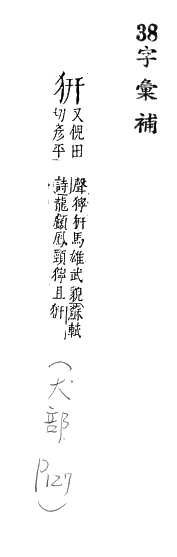 38字彙補
又倪田
切彦平
聲獰馬雄武貌蘇軾
詩龍顱鳳頸獰且
(犬部 P127)